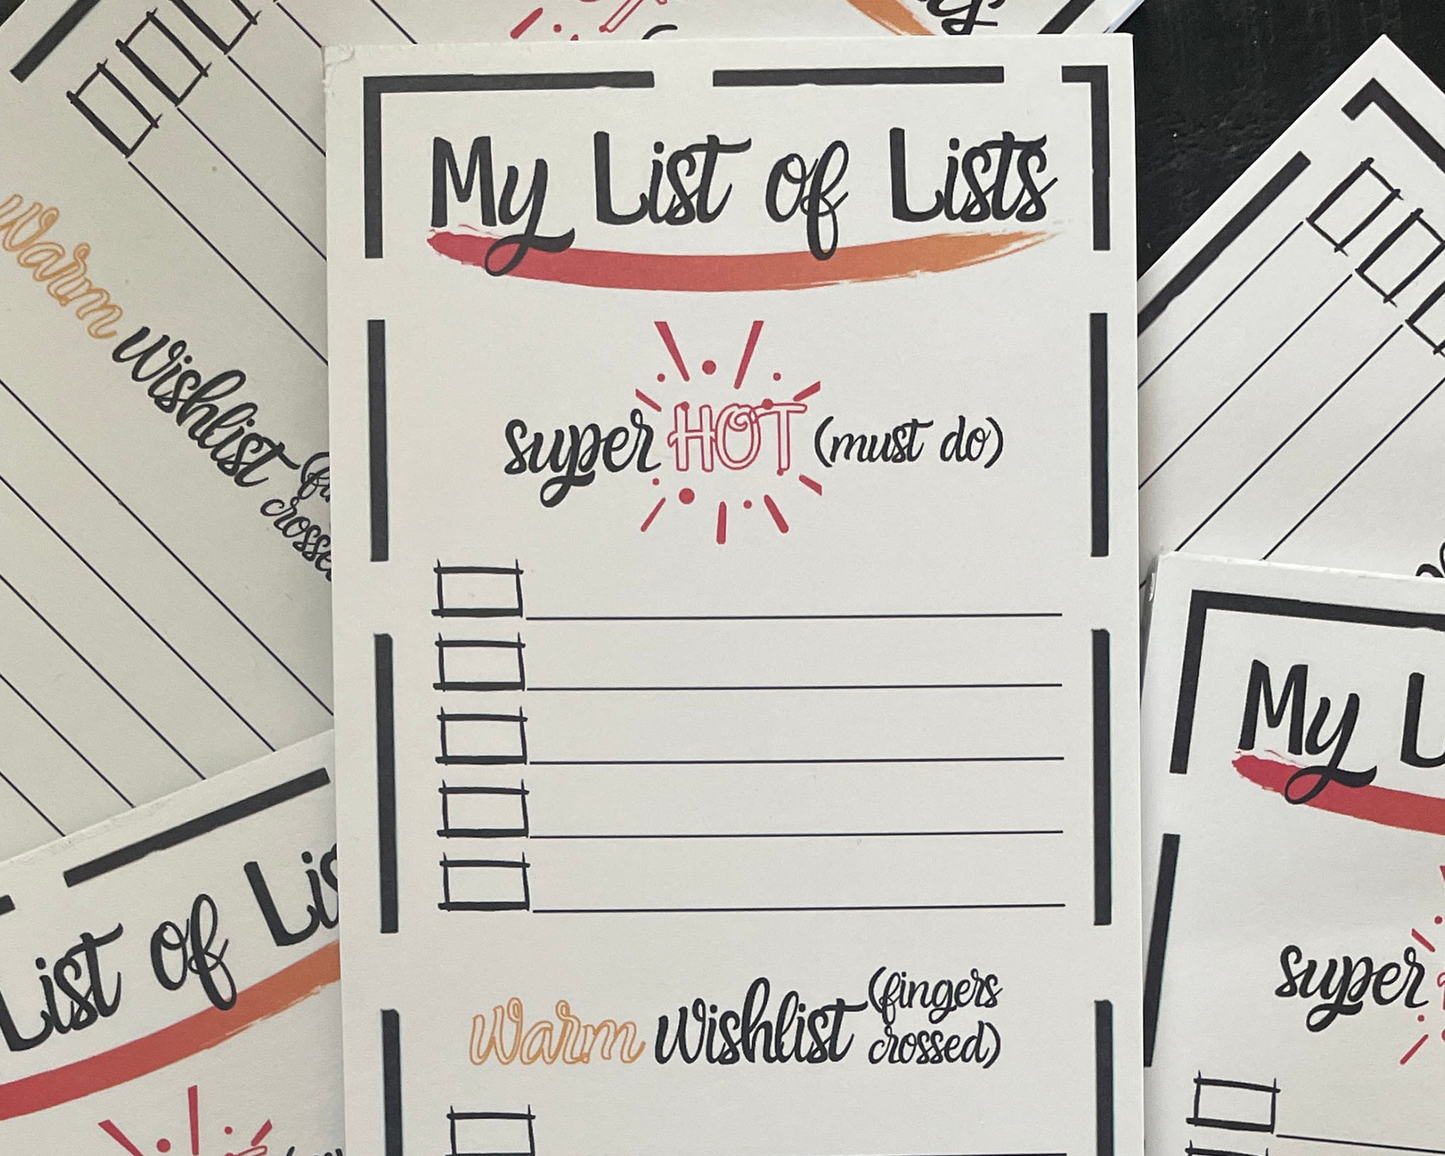 My List of Lists
super HOT (must do)
Warm wishlist (fingers
crossed)
Warm wishlist
crosse
List of Lis
My L
super